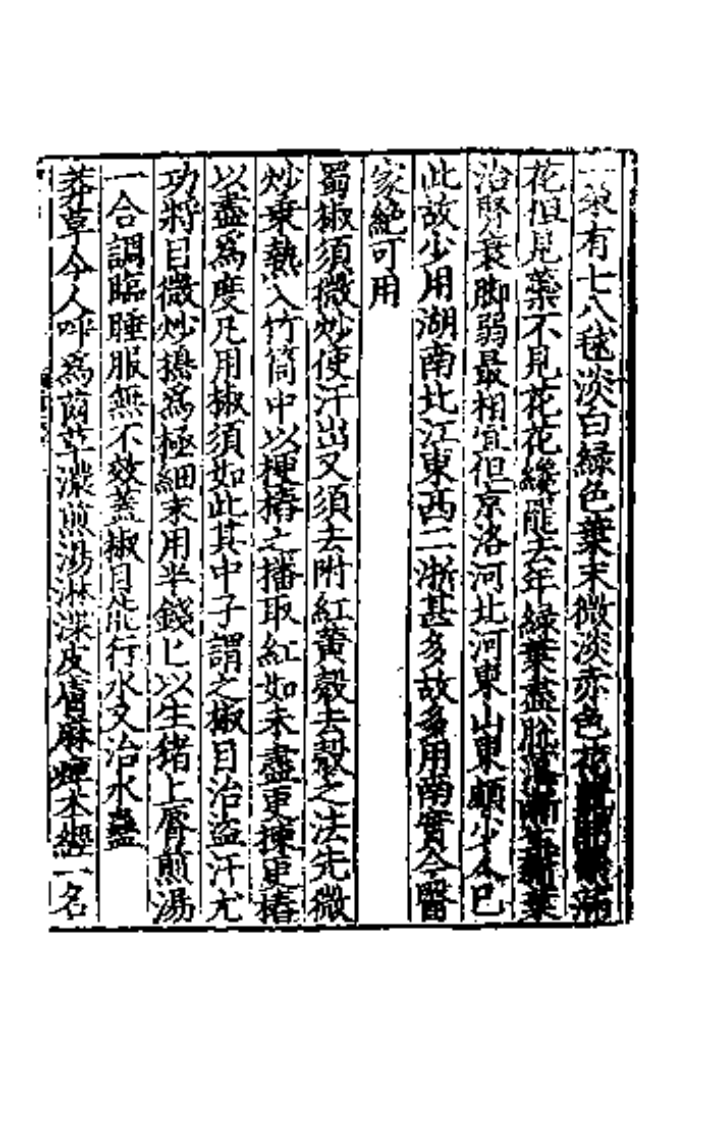 一朶有七八毬淡白綠色葉末微淡赤色花
花但見蘂不見花花纔開去年綠葉盡脫落漸生新葉
治腎衰脚弱最相宜但京洛河北河東山東頗少本已
此故少用湖南北江東西二浙甚多故多用南實今醫
家絶可用
蜀椒須微炒使汗出又須去附紅黃殼去殼之法先微
炒乗熱入竹筒中以梗樁之播取紅如未盡更揀更樁
以盡爲度凡用椒須如此其中子謂之椒目治盗汗尤
功將目微炒搗爲極細末用半錢匕以生猪上唇煎湯
一合調臨睡服無不效蓋椒目能行水又治水蠱
莽草今人呼爲𦾔草濃煎湯淋渫皮膚麻痺本經一名